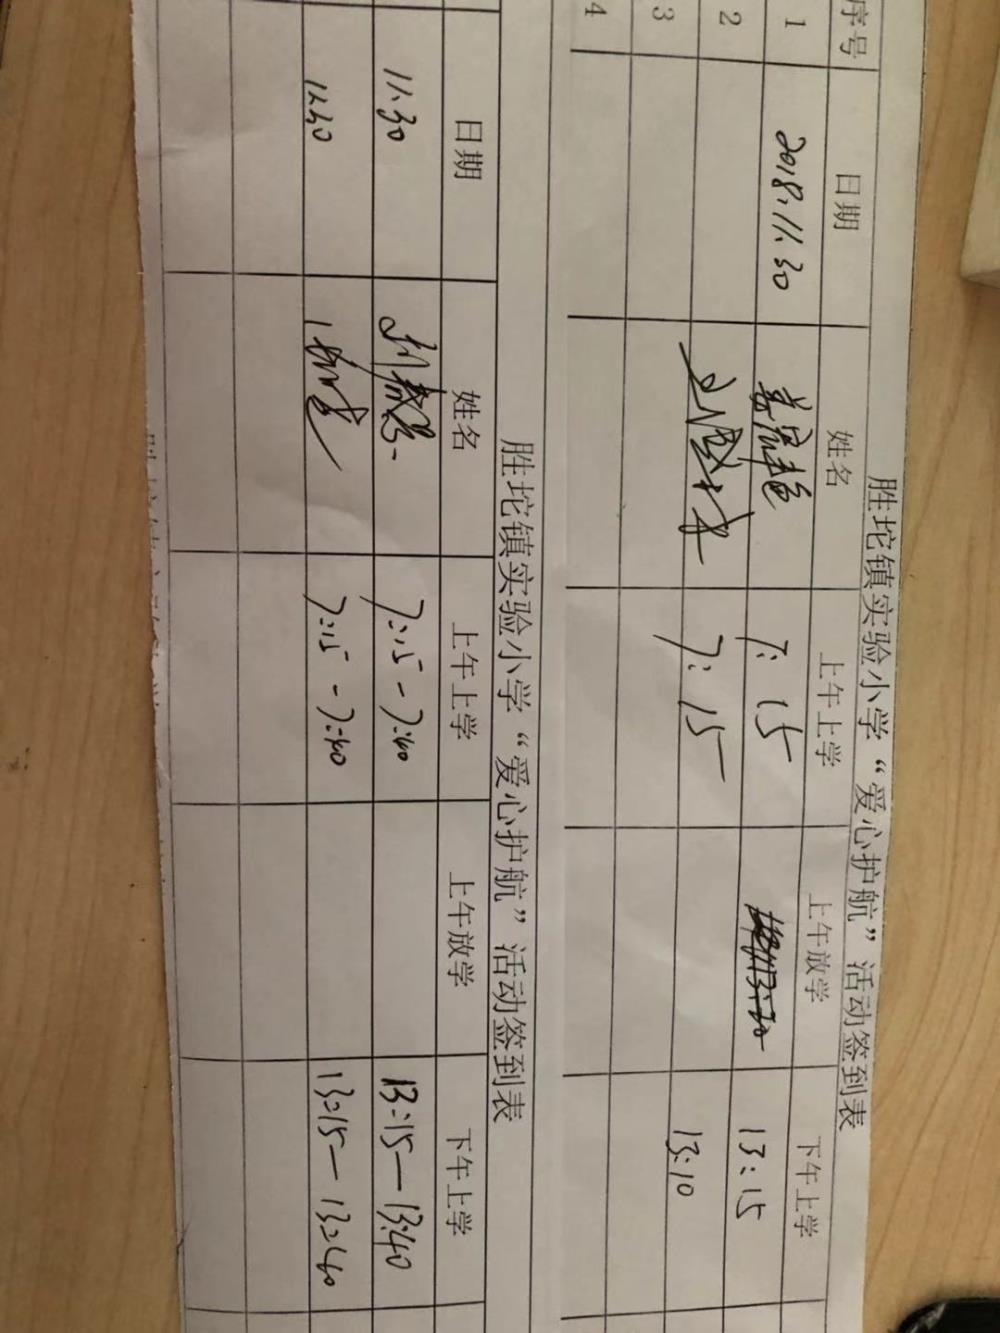 胜坨镇实验小学“爱心护航”活动签到表
序号 日期 姓名 上午上学 上午放学 下午上学
1 2018.11.30 7:15 13:15
2 7:15 13:10
3
4
胜坨镇实验小学“爱心护航”活动签到表
日期 姓名 上午上学 上午放学 下午上学
11.30 7:15-7:40 13:15—13:40
11.30 7:15-7:40 13:15—13:40